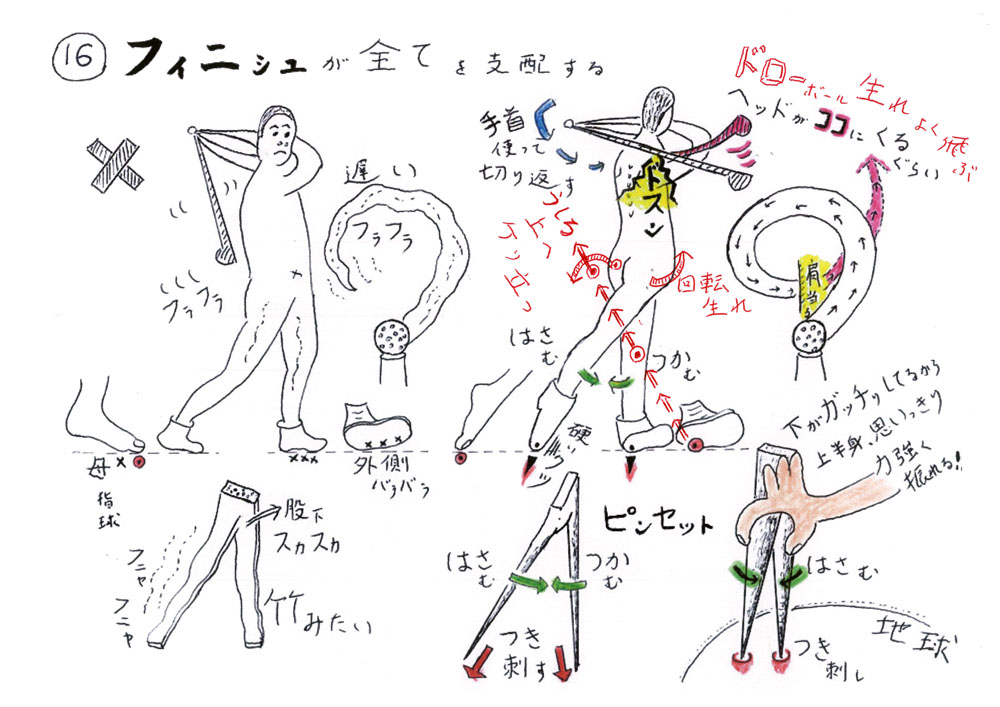 16 フィニシュが全てを支配する
ドローボール生れ
よく飛ぶ
ヘッドがココにくるぐらい
手首使って切り返す
遅い
フラフラ
フラフラ
ドスン
うしろ
回転生れ
肩当る
はさむ
つかむ
硬い
母指球
外側バラバラ
下がガッチリしてるから
上半身思いっきり
力強く
振れる!!
股下スカスカ
フニャフニャ
竹みたい
ピンセット
はさむ
つかむ
つき刺す
はさむ
つき刺し
地球